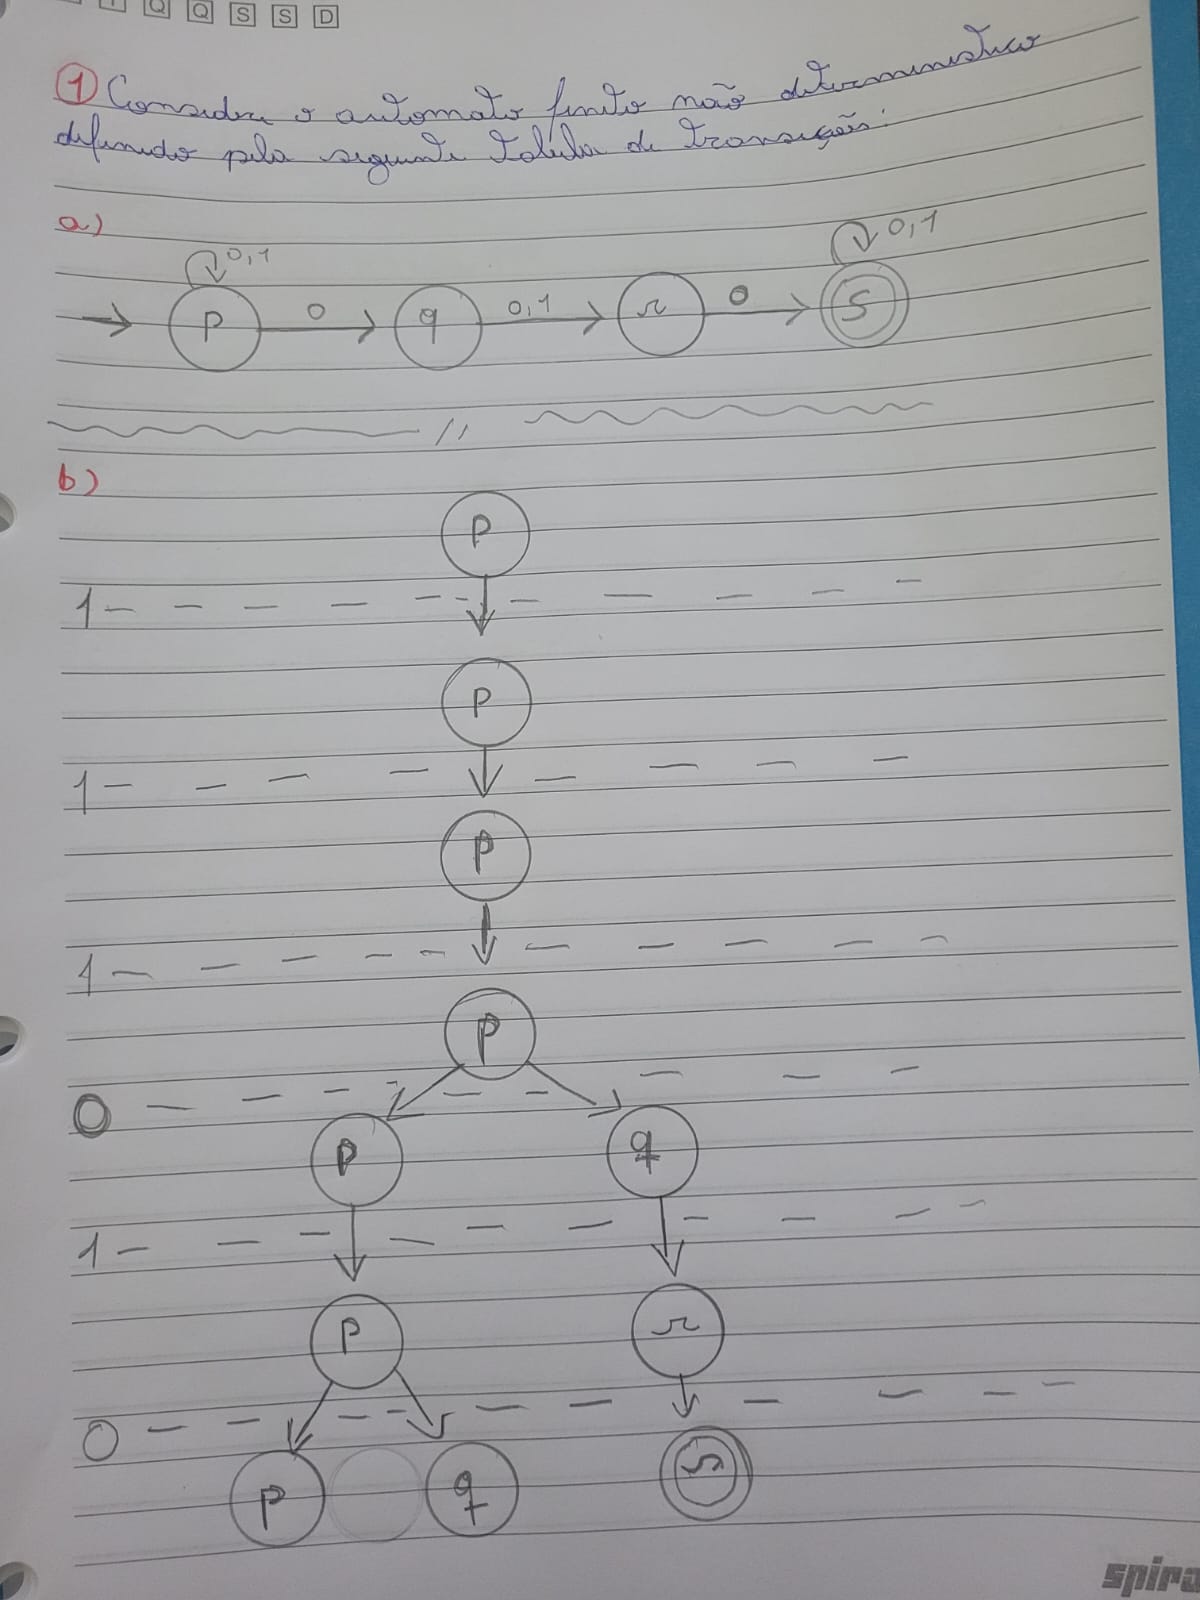 Q Q S S D
1 Considere o automato finito não deterministico
definido pela seguinte tabela de transições:
a)
0,1 0,1
p 0 q 0,1 r 0 s
b)
p
1
p
1
p
1
p
0
p q
1
p r
0
p q s